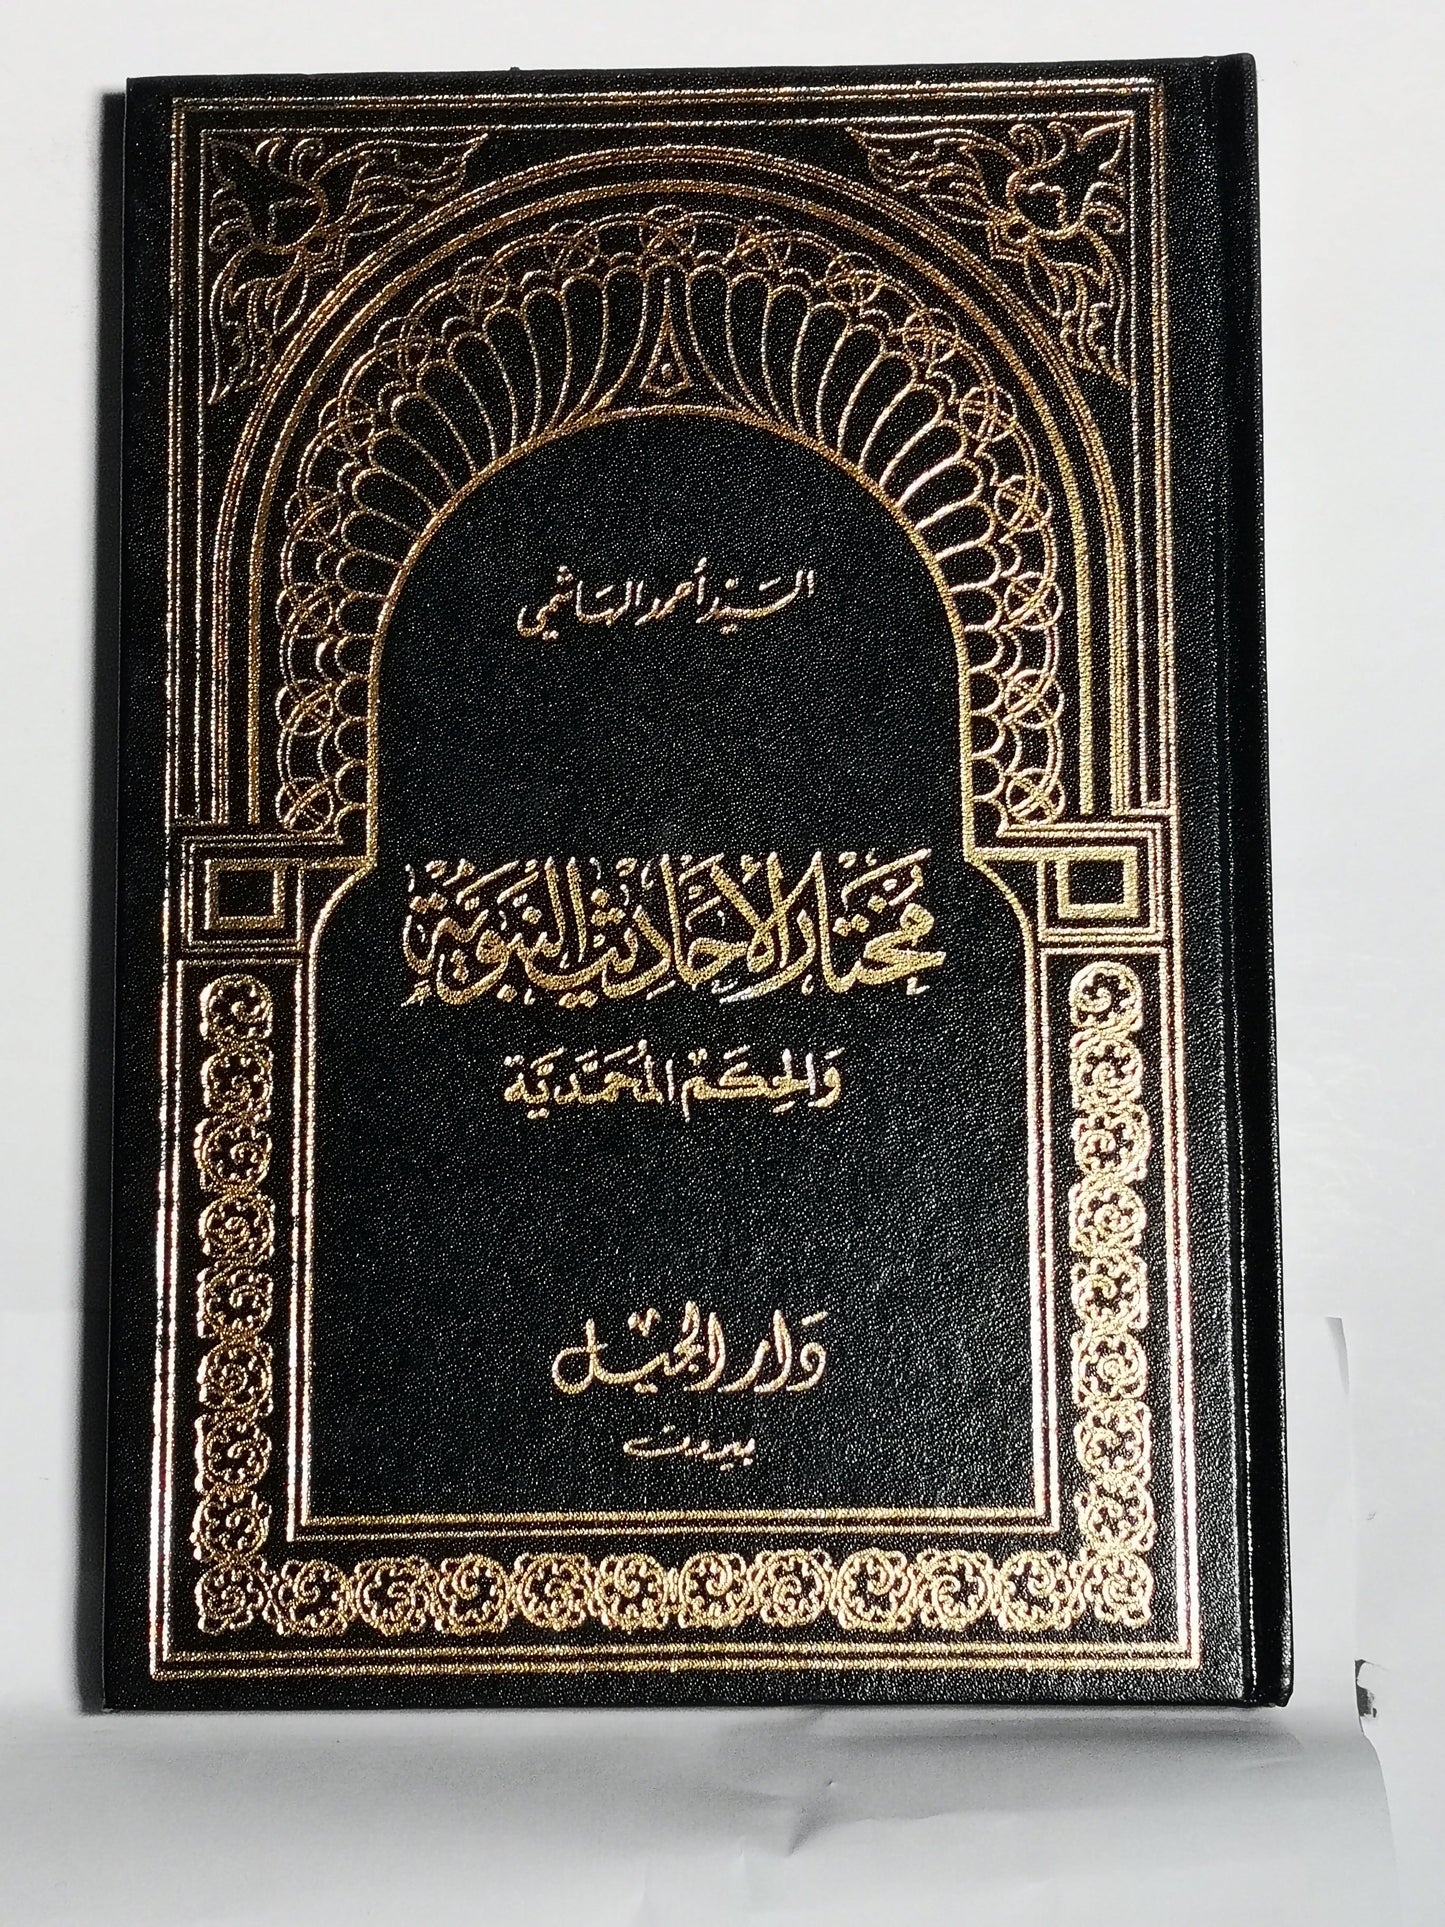 السيد أحمد الهاشمي
مختار الأحاديث النبوية
والحكم المحمدية
دار الجيل
بيروت